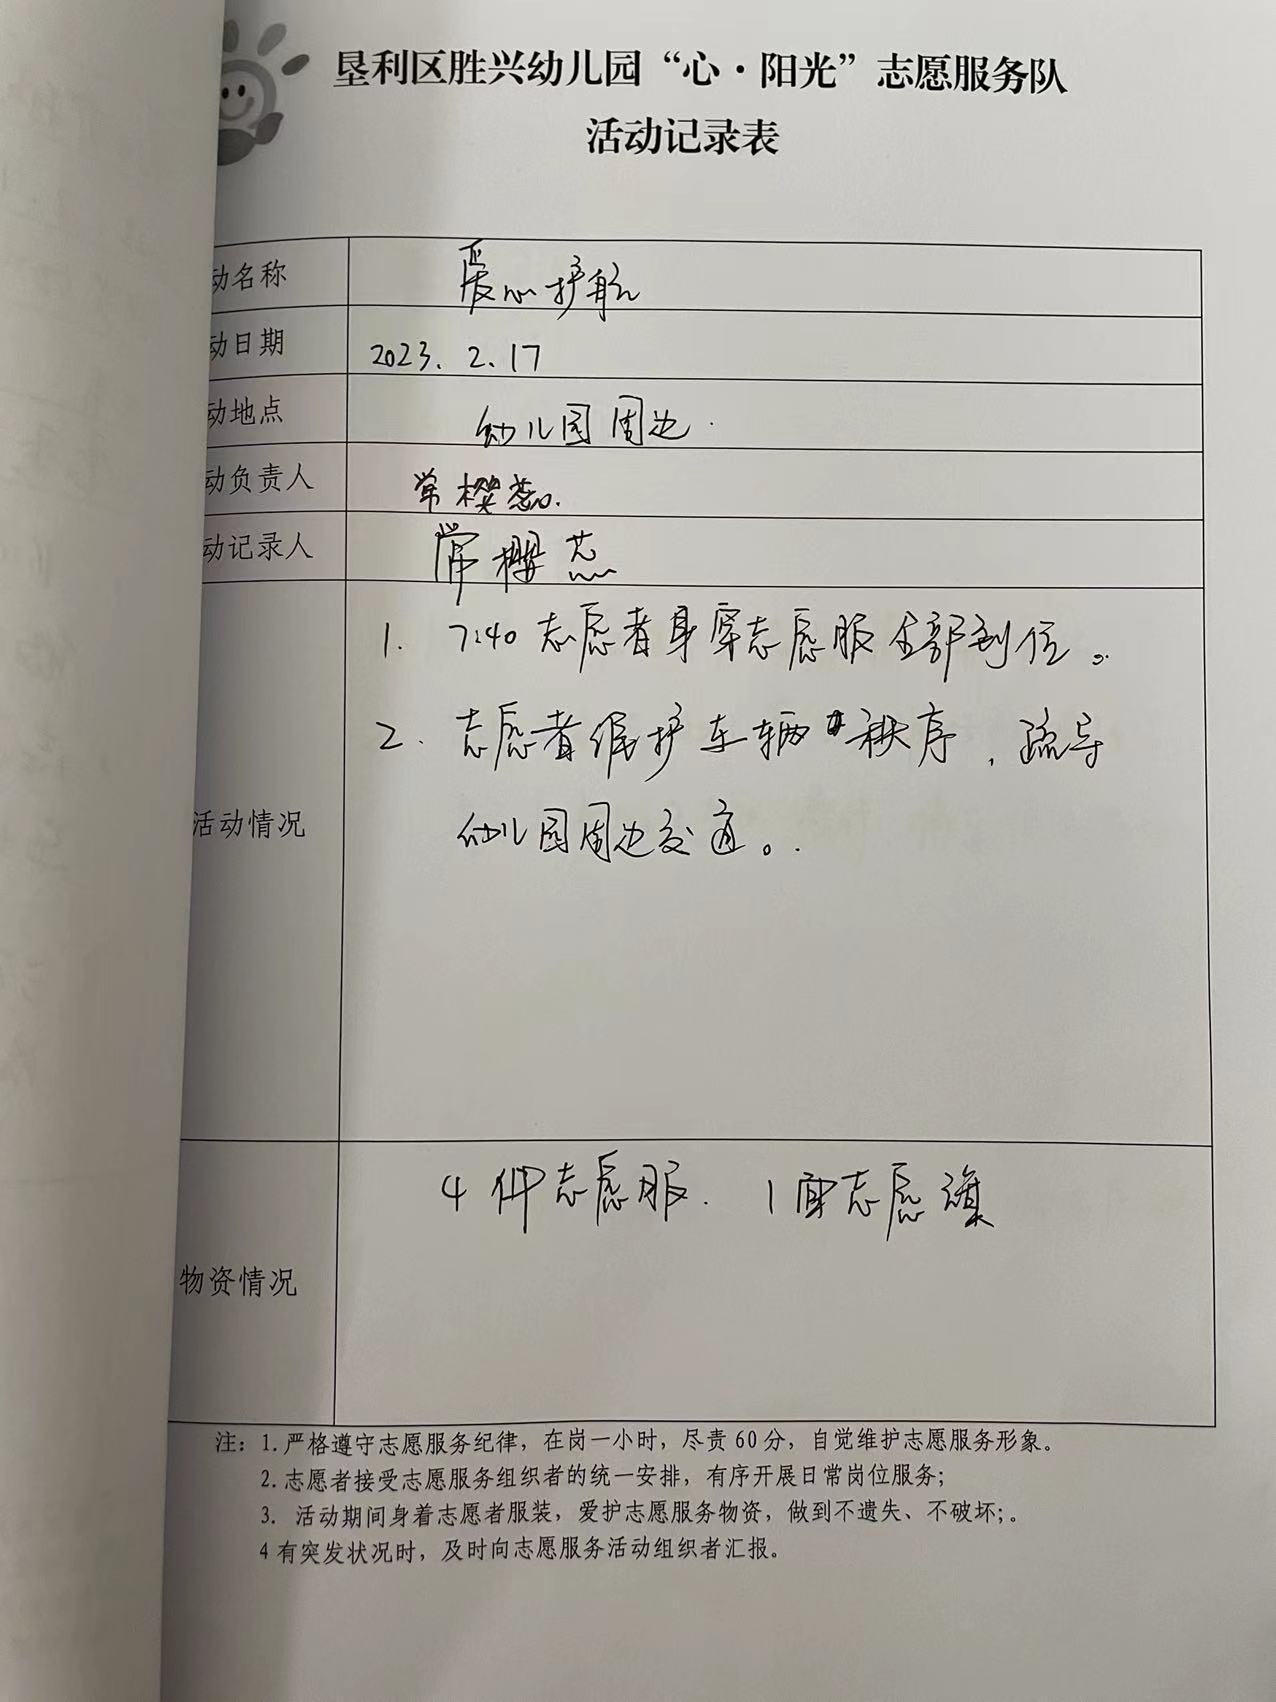 垦利区胜兴幼儿园“心·阳光”志愿服务队
活动记录表
动名称 爱心护航
动日期 2023.2.17
动地点 幼儿园周边.
动负责人 常樱蕊.
动记录人 常樱蕊
活动情况
1. 7:40 志愿者身穿志愿服全部到位。
2. 志愿者维护车辆秩序,疏导
幼儿园周边交通。.
物资情况
4件志愿服. 1面志愿旗
注：1.严格遵守志愿服务纪律，在岗一小时，尽责60分，自觉维护志愿服务形象。
2.志愿者接受志愿服务组织者的统一安排，有序开展日常岗位服务；
3. 活动期间身着志愿者服装，爱护志愿服务物资，做到不遗失、不破坏；。
4有突发状况时，及时向志愿服务活动组织者汇报。